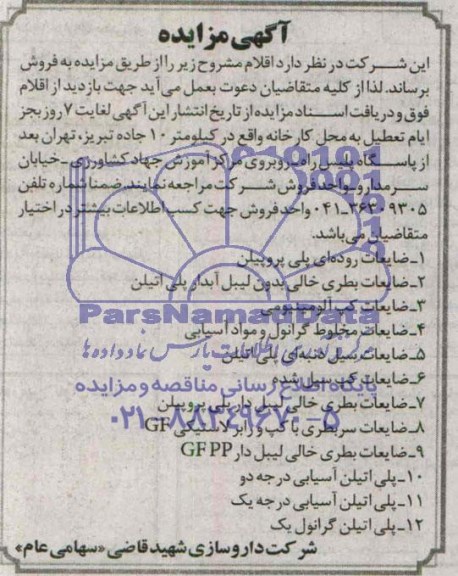 آگهی مزایده
این شرکت در نظر دارد اقلام مشروح زیر را از طریق مزایده به فروش
برساند. لذا از کلیه متقاضیان دعوت بعمل می آید جهت بازدید از اقلام
فوق و دریافت اسناد مزایده از تاریخ انتشار این آگهی لغایت ۷ روز بجز
ایام تعطیل به محل کارخانه واقع در کیلومتر ۱۰ جاده تبریز، تهران بعد
از پاسگاه پلیس راه روبروی مرکز آموزش جهاد کشاورزی ـ خیابان
سرمدارو ـ واحد فروش شرکت مراجعه نمایند. ضمنا شماره تلفن
۰۴۱-۳۶۳۰۹۳۰۵ واحد فروش جهت کسب اطلاعات بیشتر در اختیار
متقاضیان می باشد.
۱ـ ضایعات روده ای پلی پروپیلن
۲ـ ضایعات بطری خالی بدون لیبل آبدار پلی اتیلن
۳ـ ضایعات کپ آلومینیومی
۴ـ ضایعات مخلوط گرانول و مواد آسیابی
۵ـ ضایعات سیل دنبه ای پلی اتیلن
۶ـ ضایعات کپ سیل شده
۷ـ ضایعات بطری خالی لیبل دار پلی پروپیلن
۸ـ ضایعات سربطری با کپ و رابر لاستیکی GF
۹ـ ضایعات بطری خالی لیبل دار GF PP
۱۰ـ پلی اتیلن آسیابی درجه دو
۱۱ـ پلی اتیلن آسیابی درجه یک
۱۲ـ پلی اتیلن گرانول یک
شرکت داروسازی شهید قاضی «سهامی عام»
ParsNamadData
پایگاه اطلاع رسانی مناقصه و مزایده
۰۲۱-۸۸۳۴۹۶۷۰-۵